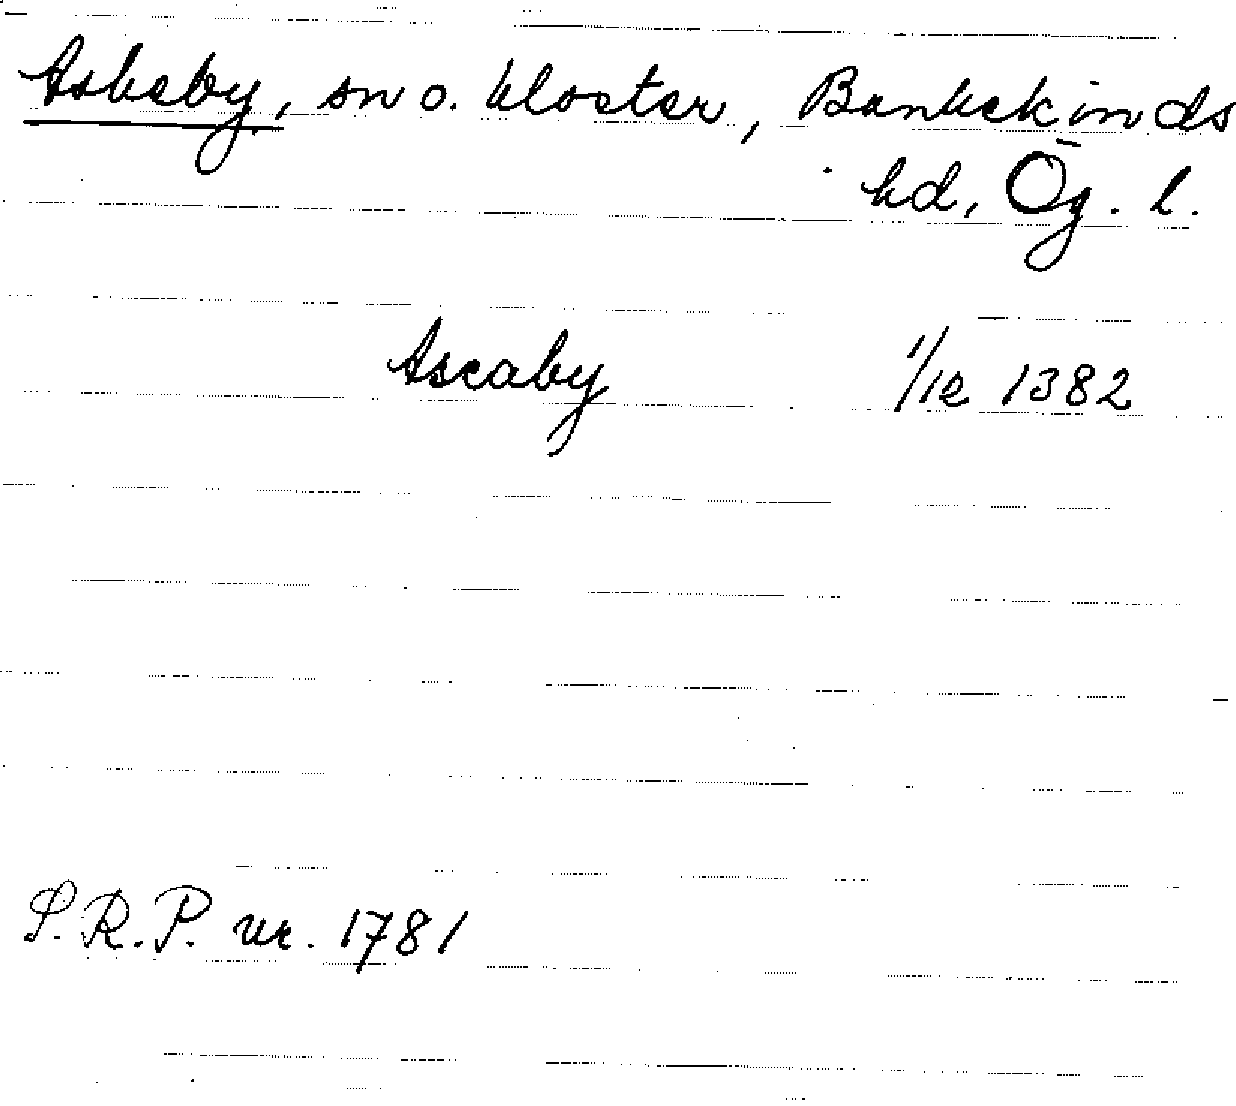 Askeby, sn o. kloster, Bankekinds
hd, Ög. l.
Ascaby 1/12 1382
S.R.P. nr. 1781